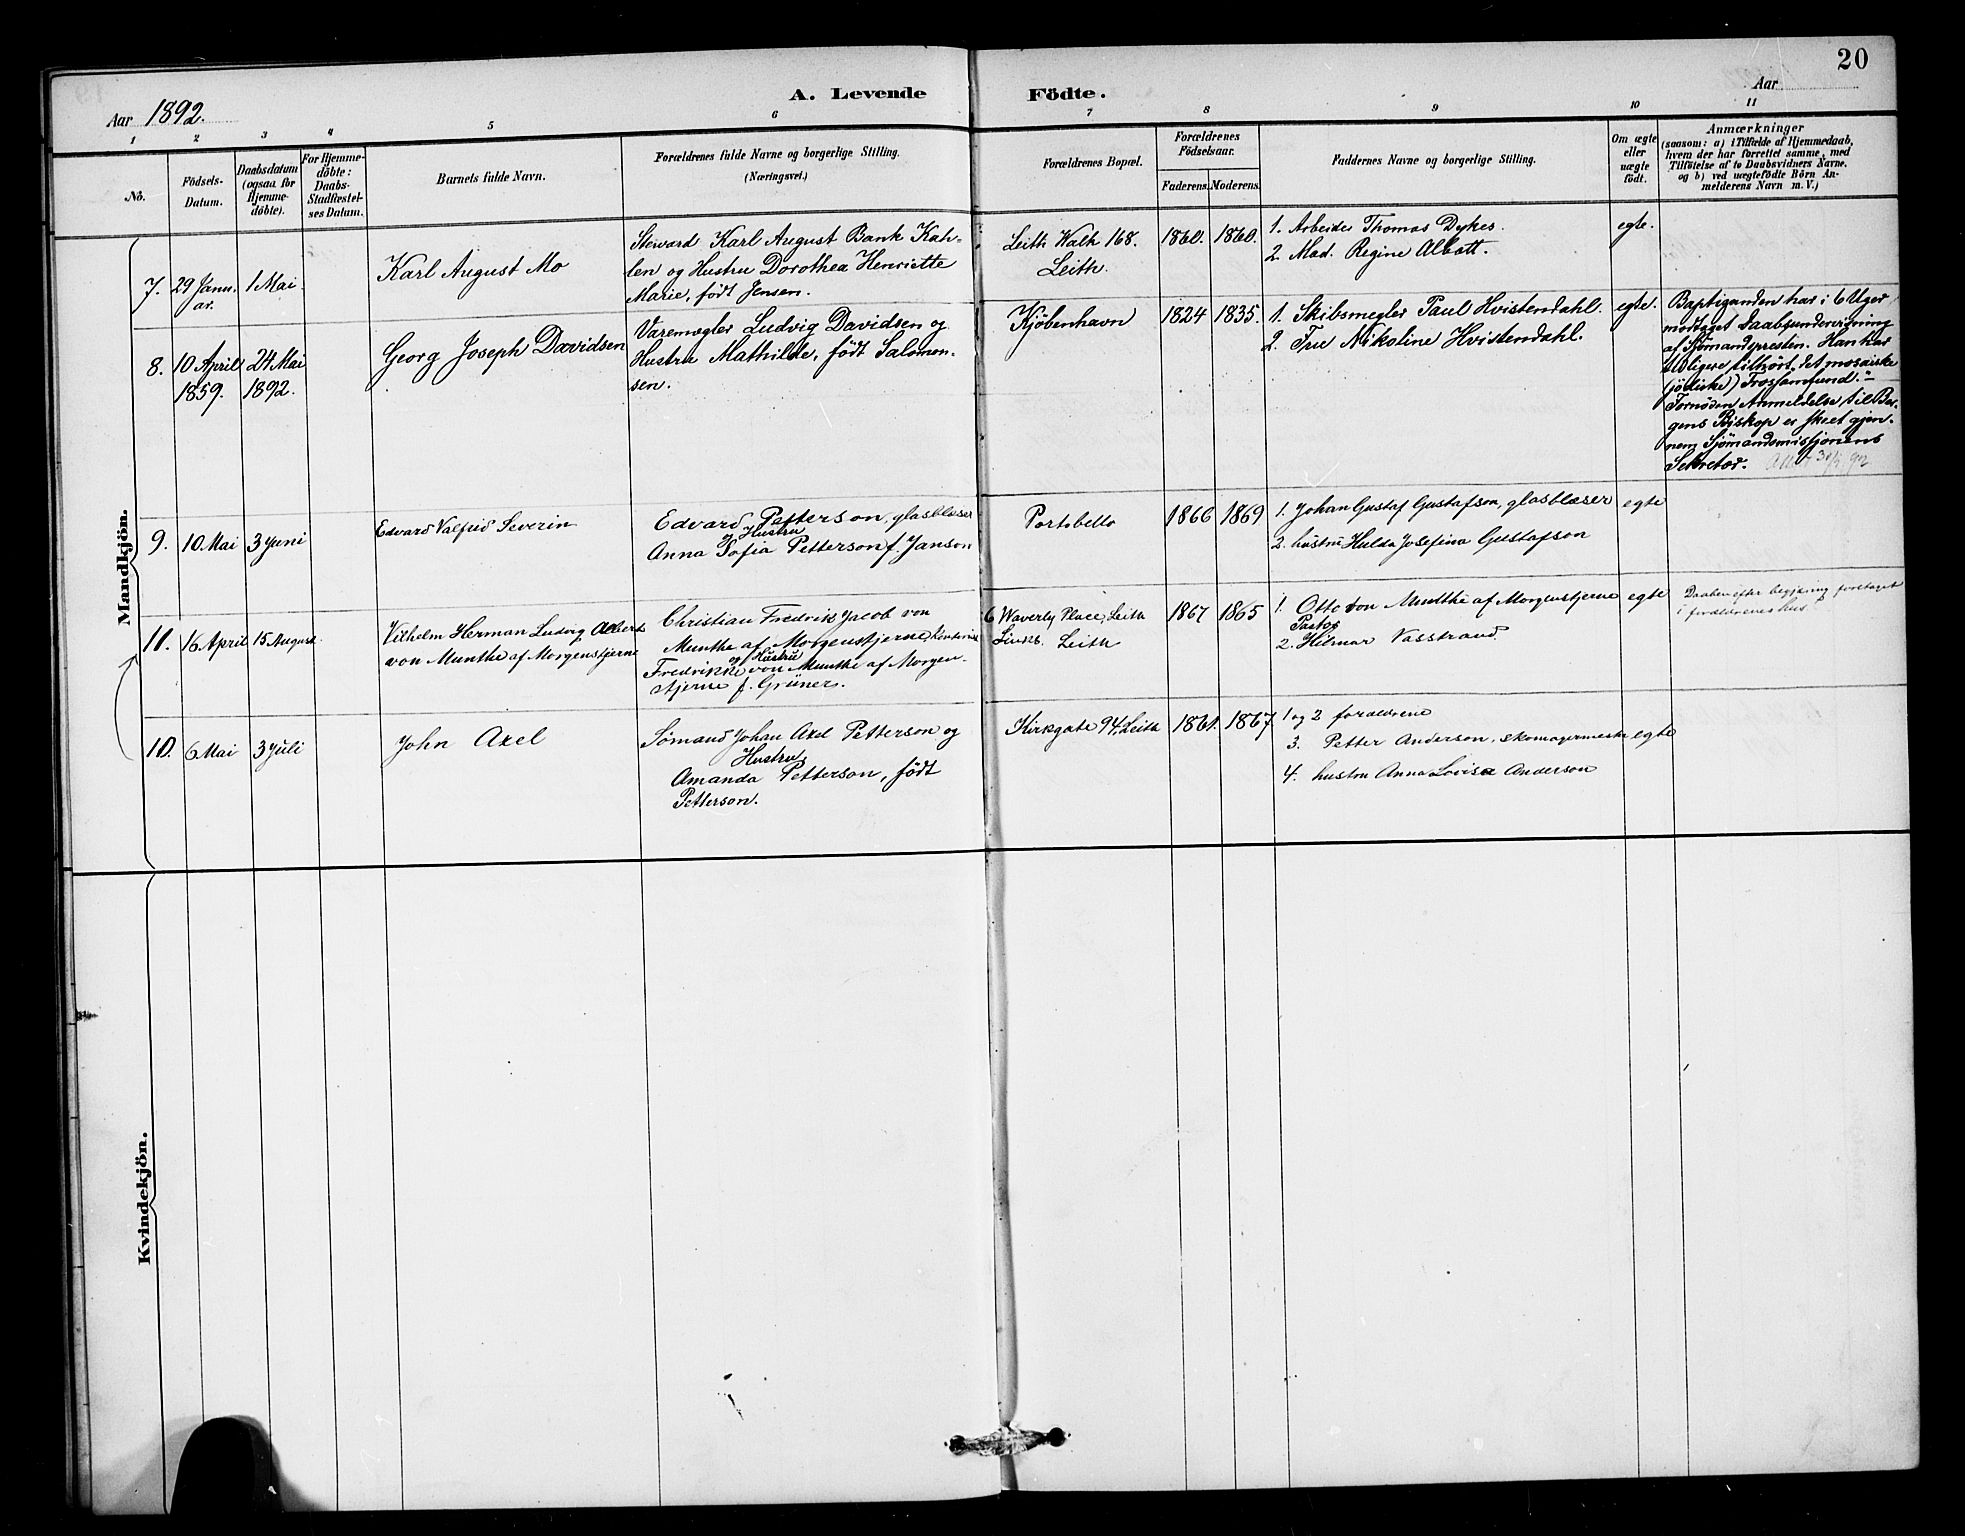 20
Aar 1892.
A. Levende Födte.
Aar
1 2 3 4 5 6 7 8 9 10 11
No.
Födsels-
Datum.
Daabsdatum
(ogsaa for
Hjemme-
döbte).
For Hjemme-
döbte:
Daabs-
Stadfæstel-
ses Datum.
Barnets fulde Navn.
Forældrenes fulde Navne og borgerlige Stilling.
(Næringsvei.)
Forældrenes Bopæl.
Forældrenes
Födselsaar.
Faderens. Moderens.
Faddernes Navne og borgerlige Stilling.
Om ægte
eller
uægte
födt.
Anmærkninger
(saasom: a) i Tilfælde af Hjemmedaab,
hvem der har forrettet samme, med
Tilföielse af to Daabsvidners Navne.
og b) ved uægtefödte Börn An-
melderens Navn m. V.)
Mandkjön.
7.
29 Janu-
ar.
1 Mai
Karl August Mo
Steward Karl August Bank Kah-
len og Hustru Dorothea Henriette
Marie, født Jensen.
Leith Walk 168.
Leith.
1860. 1860.
1. Arbeider Thomas Dykes.
2. Mad. Regine Albott.
egte.
8.
10 April
1859.
24 Mai
1892.
Georg Joseph Davidsen
Varemægler Ludvig Davidsen og
Hustru Mathilde, født Salomon-
sen.
Kjøbenhavn
1824 1835.
1. Skibsmegler Paul Hvistendahl.
2. Fru Nikoline Hvistendahl.
egte.
Baptizanden har i 6 Uger
modtaget Daabsundervisning
af Sjømandspresten. Han har
tidligere tilhørt det mosaiske
(jødiske) Trossamfund.
Fornøden Anmeldelse til Ber-
gens Biskop er skeet gjen-
nem Sjømandsmissionens
Sekretær.
9.
10 Mai
3 Juni
Edvard Valfrid Severin
Edvard Petterson, glasblæser
og Hustru
Anna Sofia Petterson f. Janson
Portobello
1866 1869
1. Johan Gustaf Gustafson, glasblæser
2. hustru Hulda Josefina Gustafson
egte
11.
16 April
15 August
Vilhelm Herman Ludvig Albert
von Munthe af Morgenstjerne
Christian Fredrik Jacob von
Munthe af Morgenstjerne,
og Hustru
Fredrikke von Munthe af Morgen-
stjerne f. Grüner.
6 Waverly Place, Leith
Links. Leith
1867 1865
1. Otto von Munthe af Morgenstjerne
Pastor
2. Hilmar Vasstrand
egte
Daaben efter begjæring foretaget
i forældrenes hus
10.
6 Mai
3 Juli
John Axel
Sømand Johan Axel Petterson og
Hustru
Amanda Petterson, født
Petterson.
Kirkgate 94, Leith
1861. 1867
1 og 2 forældrene
3. Petter Anderson, skomagermester
4. hustru Anna Lovisa Anderson
egte
Kvindekjön.